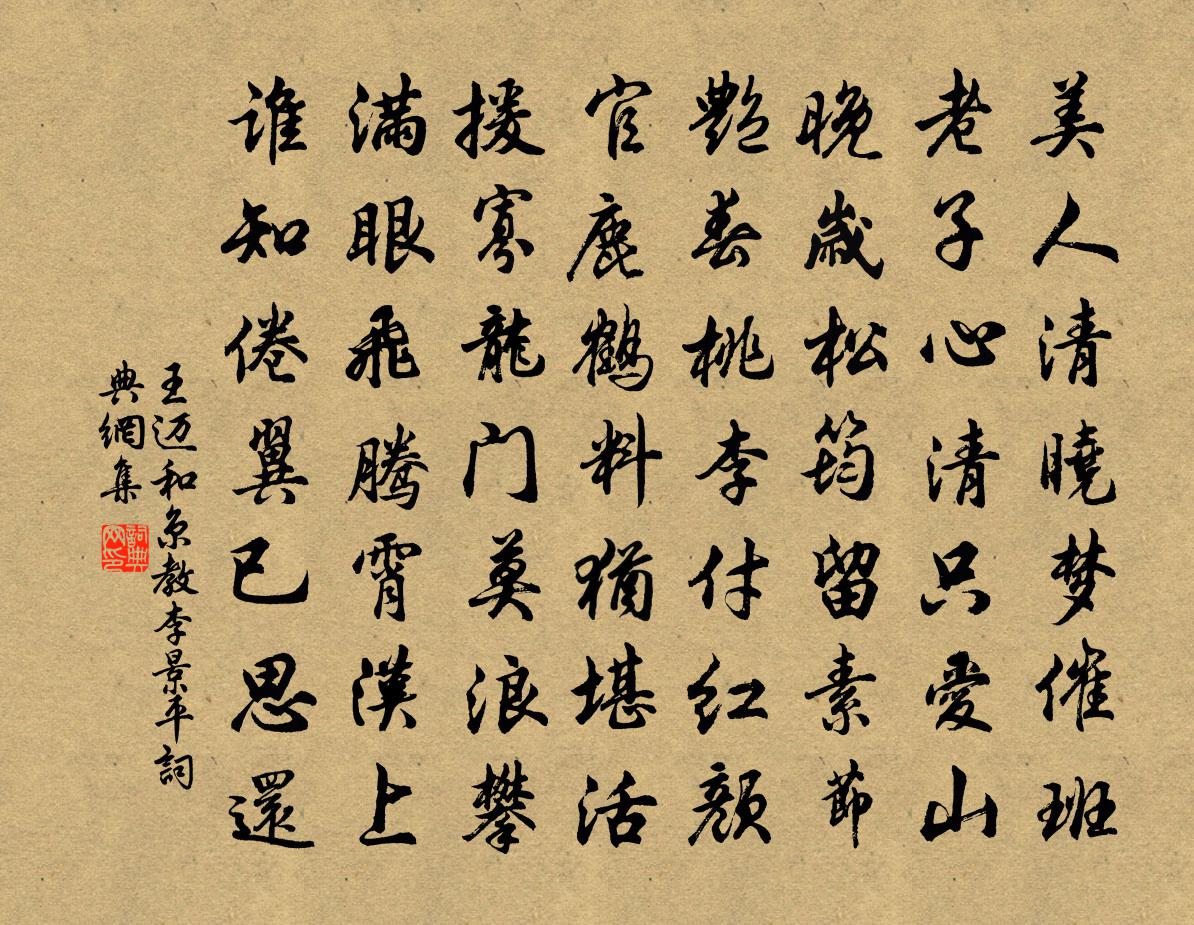 美人清曉梦催班
老子心清只愛山
晚歲松筠留素節
艷春桃李付红顏
官鹿鶴料猶堪活
援寡龍门莫浪攀
滿眼飛騰霄漢上
誰知倦翼已思還
王迈和京教李景平詞
典網集
詞典
网印